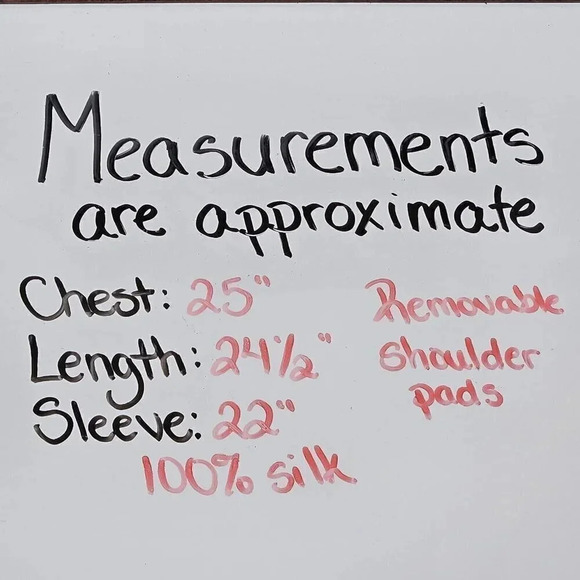 Measurements
are approximate
Chest: 25"
Length: 24½"
Sleeve: 22"
100% silk
Removable
shoulder
pads